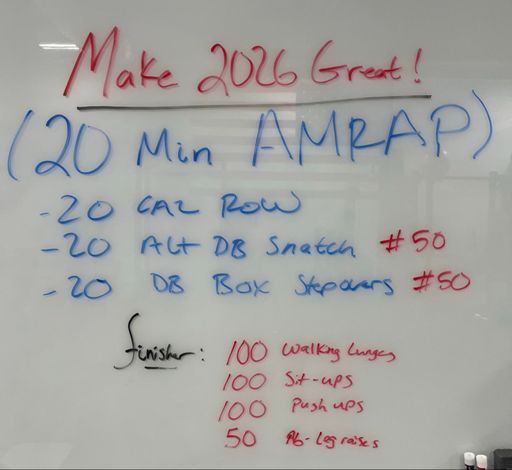 Make 2026 Great!
(20 Min AMRAP)
-20 CAL ROW
-20 Alt DB Snatch #50
-20 DB Box Stepovers #50
finisher: 100 Walking Lunges
100 Sit-ups
100 Push ups
50 Ab-Leg raises